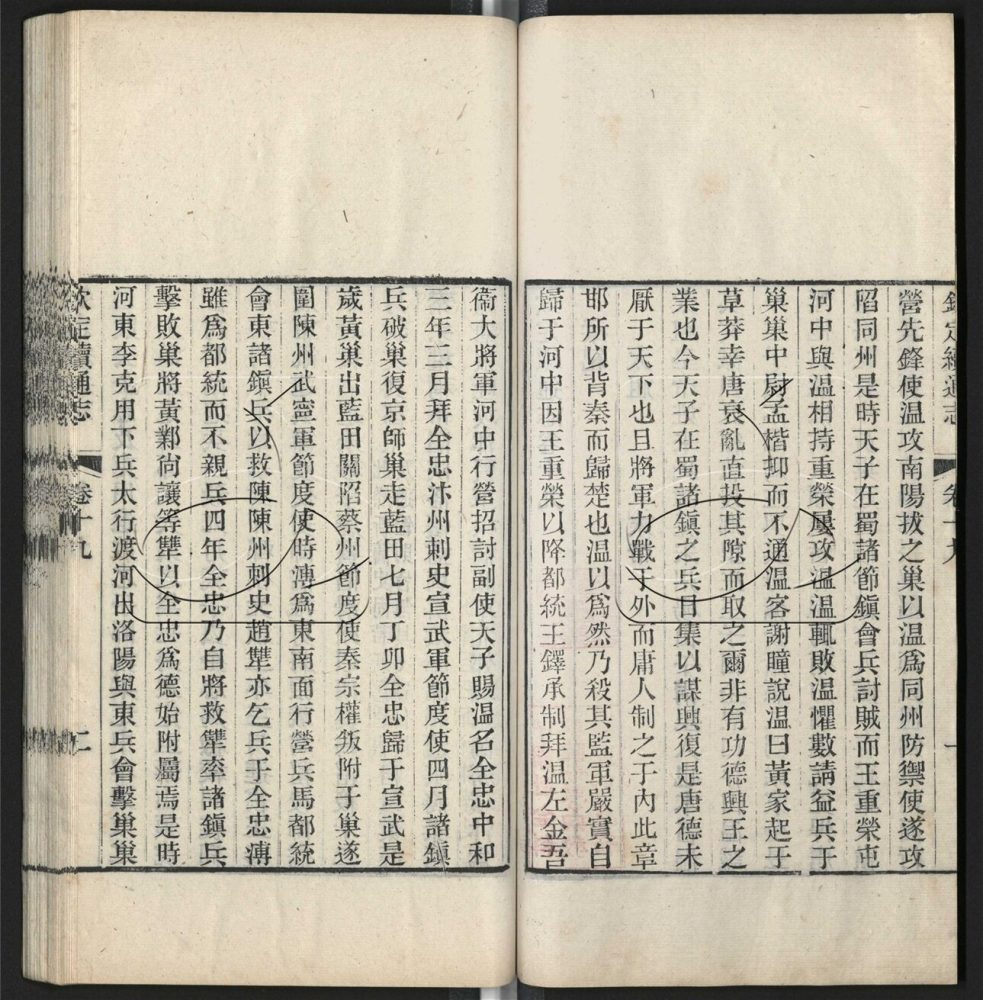 欽定續通志 卷十九 一
營先鋒使溫攻南陽拔之巢以溫爲同州防禦使遂攻
陷同州是時天子在蜀諸節鎮會兵討賊而王重榮屯
河中與溫相持重榮屢攻溫溫輒敗溫懼數請益兵于
巢巢中尉孟楷抑而不通溫客謝瞳說溫曰黃家起于
草莽幸唐衰亂直投其隙而取之爾非有功德興王之
業也今天子在蜀諸鎮之兵日集以謀興復是唐德未
厭于天下也且將軍力戰于外而庸人制之于內此章
邯所以背秦而歸楚也溫以爲然乃殺其監軍嚴實自
歸于河中因王重榮以降都統王鐸承制拜溫左金吾
衞大將軍河中行營招討副使天子賜溫名全忠中和
三年三月拜全忠汴州刺史宣武軍節度使四月諸鎮
兵破巢復京師巢走藍田七月丁卯全忠歸于宣武是
歲黃巢出藍田關陷蔡州節度使秦宗權叛附于巢遂
圍陳州武寧軍節度使時溥爲東南面行營兵馬都統
會東諸鎮兵以救陳陳州刺史趙犨亦乞兵于全忠溥
雖爲都統而不親兵四年全忠乃自將救犨率諸鎮兵
擊敗巢將黃鄴尙讓等犨以全忠爲德始附屬焉是時
河東李克用下兵太行渡河出洛陽與東兵會擊巢巢
欽定續通志 卷十九 二